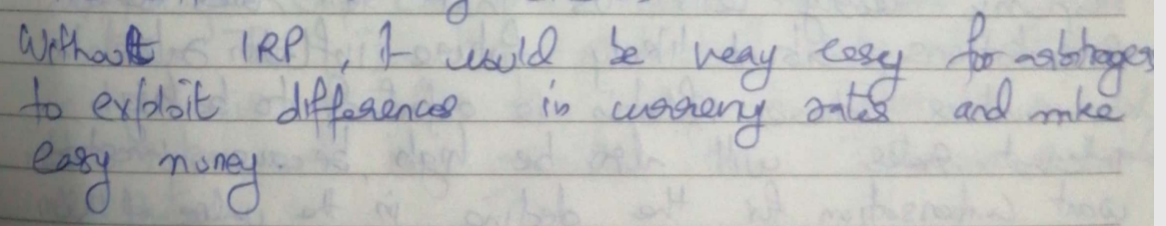 Without IRP, it would be very easy for arbitrages
to exploit differences in currency rates and mke
easy money.